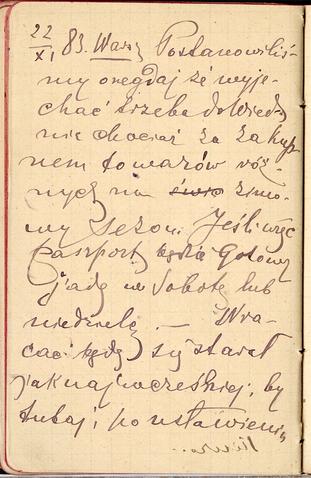 22/XI 83. Warsz Postanowiliś-
my onegdaj że wyje-
chać trzeba do Wied
nia chociaż za zakup
nem towarów róż
nych na zimo-
wy sezon. Jeśli więc
paszport będzie gotowy
jadę w Sobotę lub
niedzielę. — Wra-
cać będę się starał
jaknajwcześniej, by
tutaj, po ustawieniu